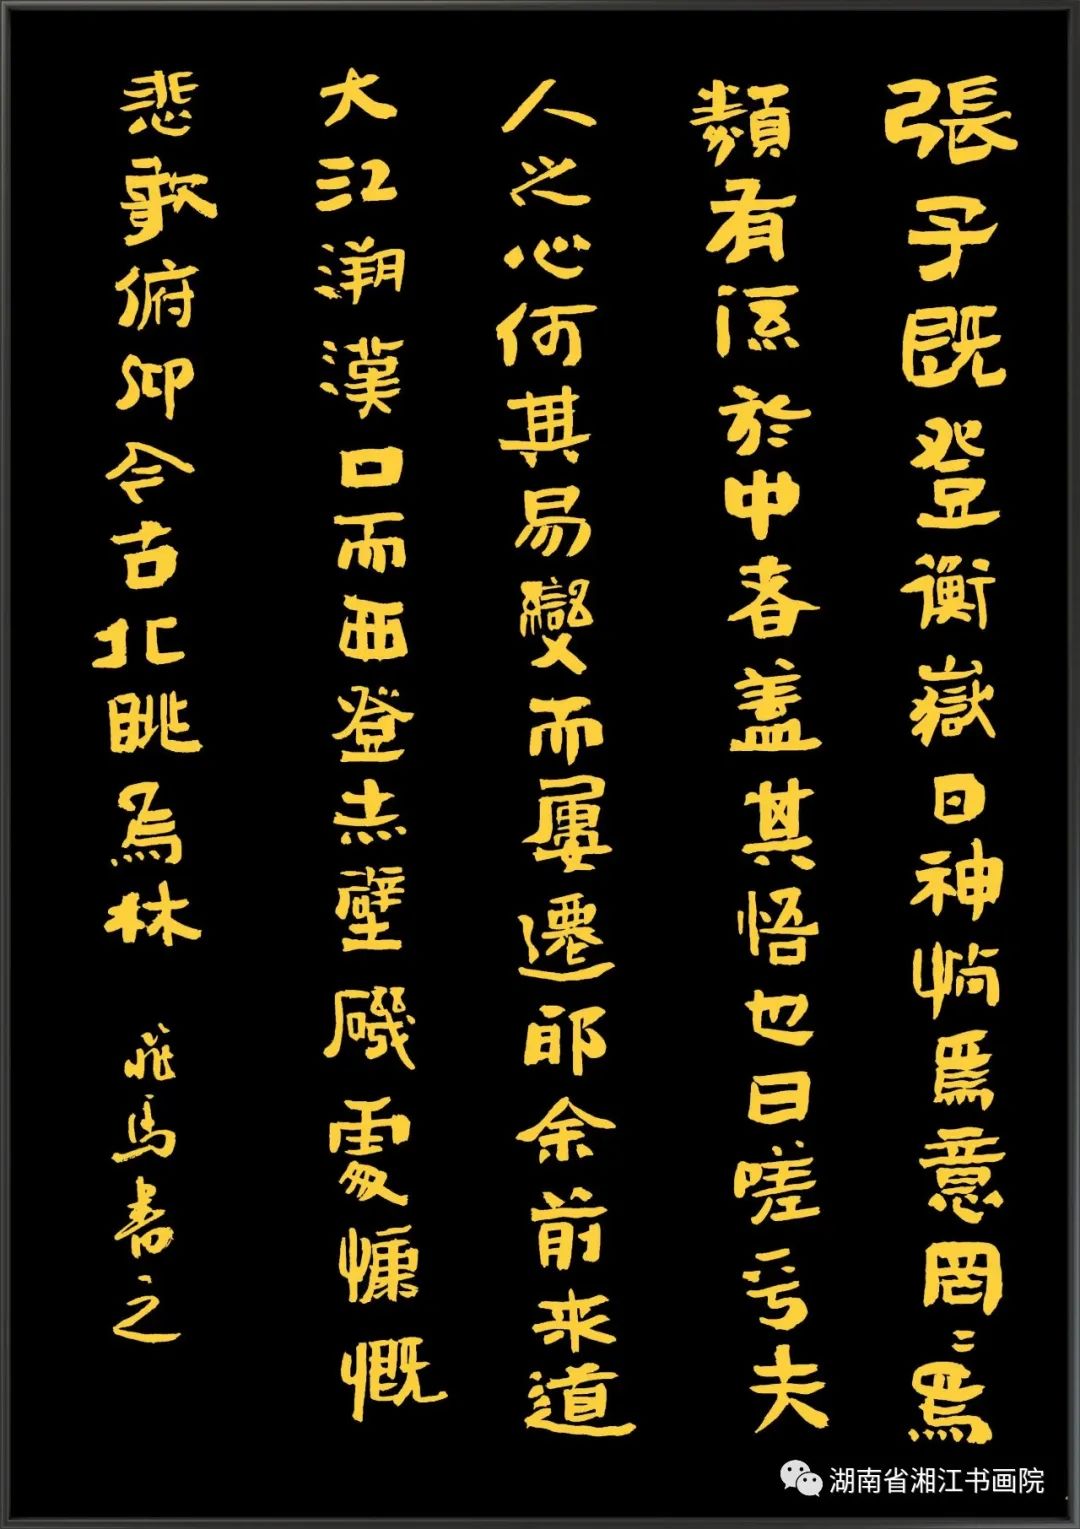 張子既登衡嶽日神惝焉意罔〻焉
類有感於中春蓋其悟也曰嗟乎夫
人之心何其易變而屢遷耶余前來道
大江溯漢口而西登赤壁磯處慷慨
悲歌俯仰今古北眺烏林
飛馬書之
湖南省湘江书画院